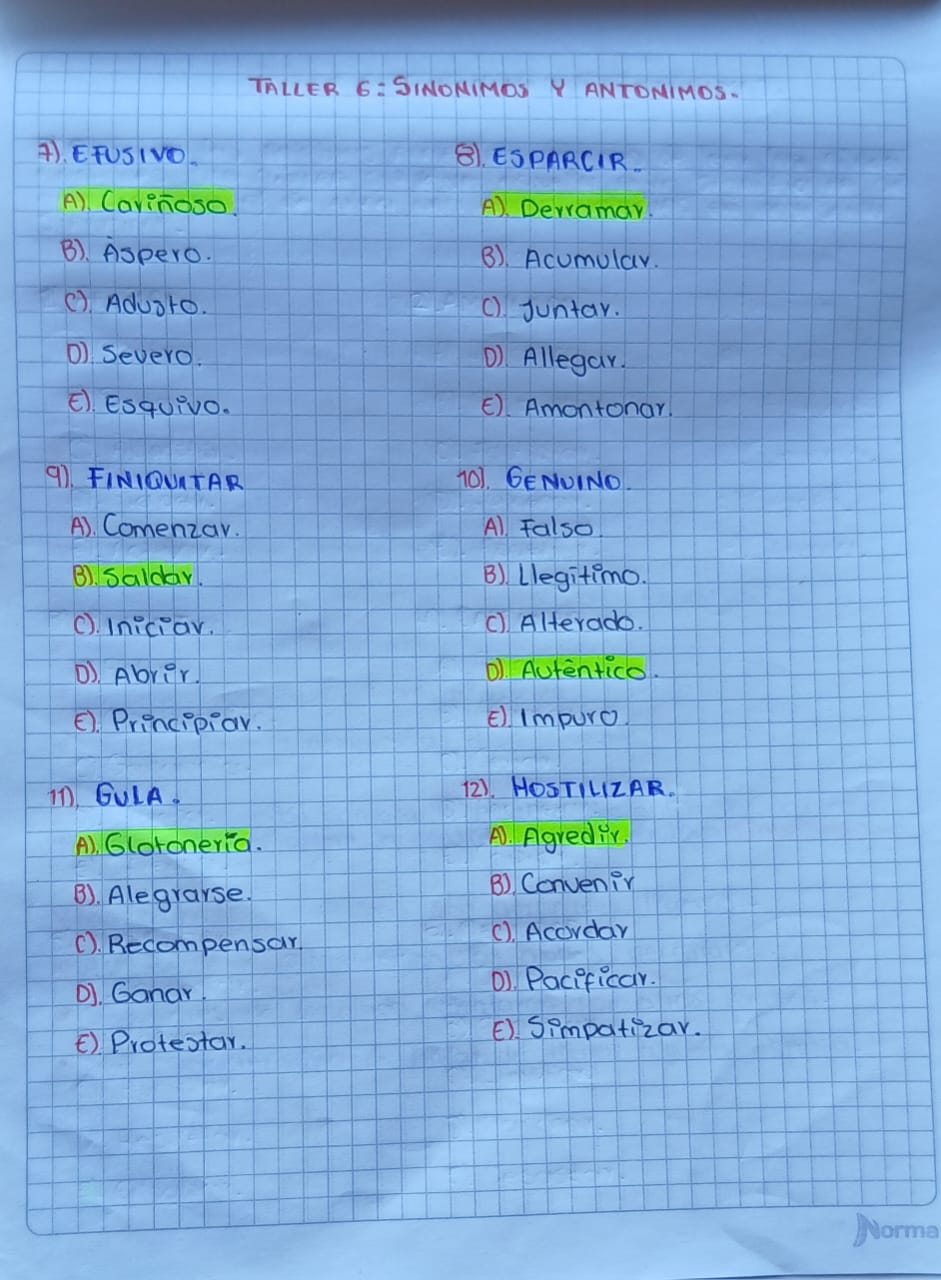 TALLER 6: SINONIMOS Y ANTONIMOS.
7). EFUSIVO.
A). Cariñoso.
B). Áspero.
C). Adusto.
D). Severo.
E). Esquivo.
8). ESPARCIR.
A). Derramar.
B). Acumular.
C). Juntar.
D). Allegar.
E). Amontonar.
9). FINIQUITAR
A). Comenzar.
B). Saldar.
C). Iniciar.
D). Abrir.
E). Principiar.
10). GENUINO.
A). Falso.
B). Llegítimo.
C). Alterado.
D). Auténtico.
E). Impuro.
11). GULA.
A). Glotonería.
B). Alegrarse.
C). Recompensar.
D). Ganar.
E). Protestar.
12). HOSTILIZAR.
A). Agredir.
B). Convenir
C). Acordar
D). Pacificar.
E). Simpatizar.
Norma